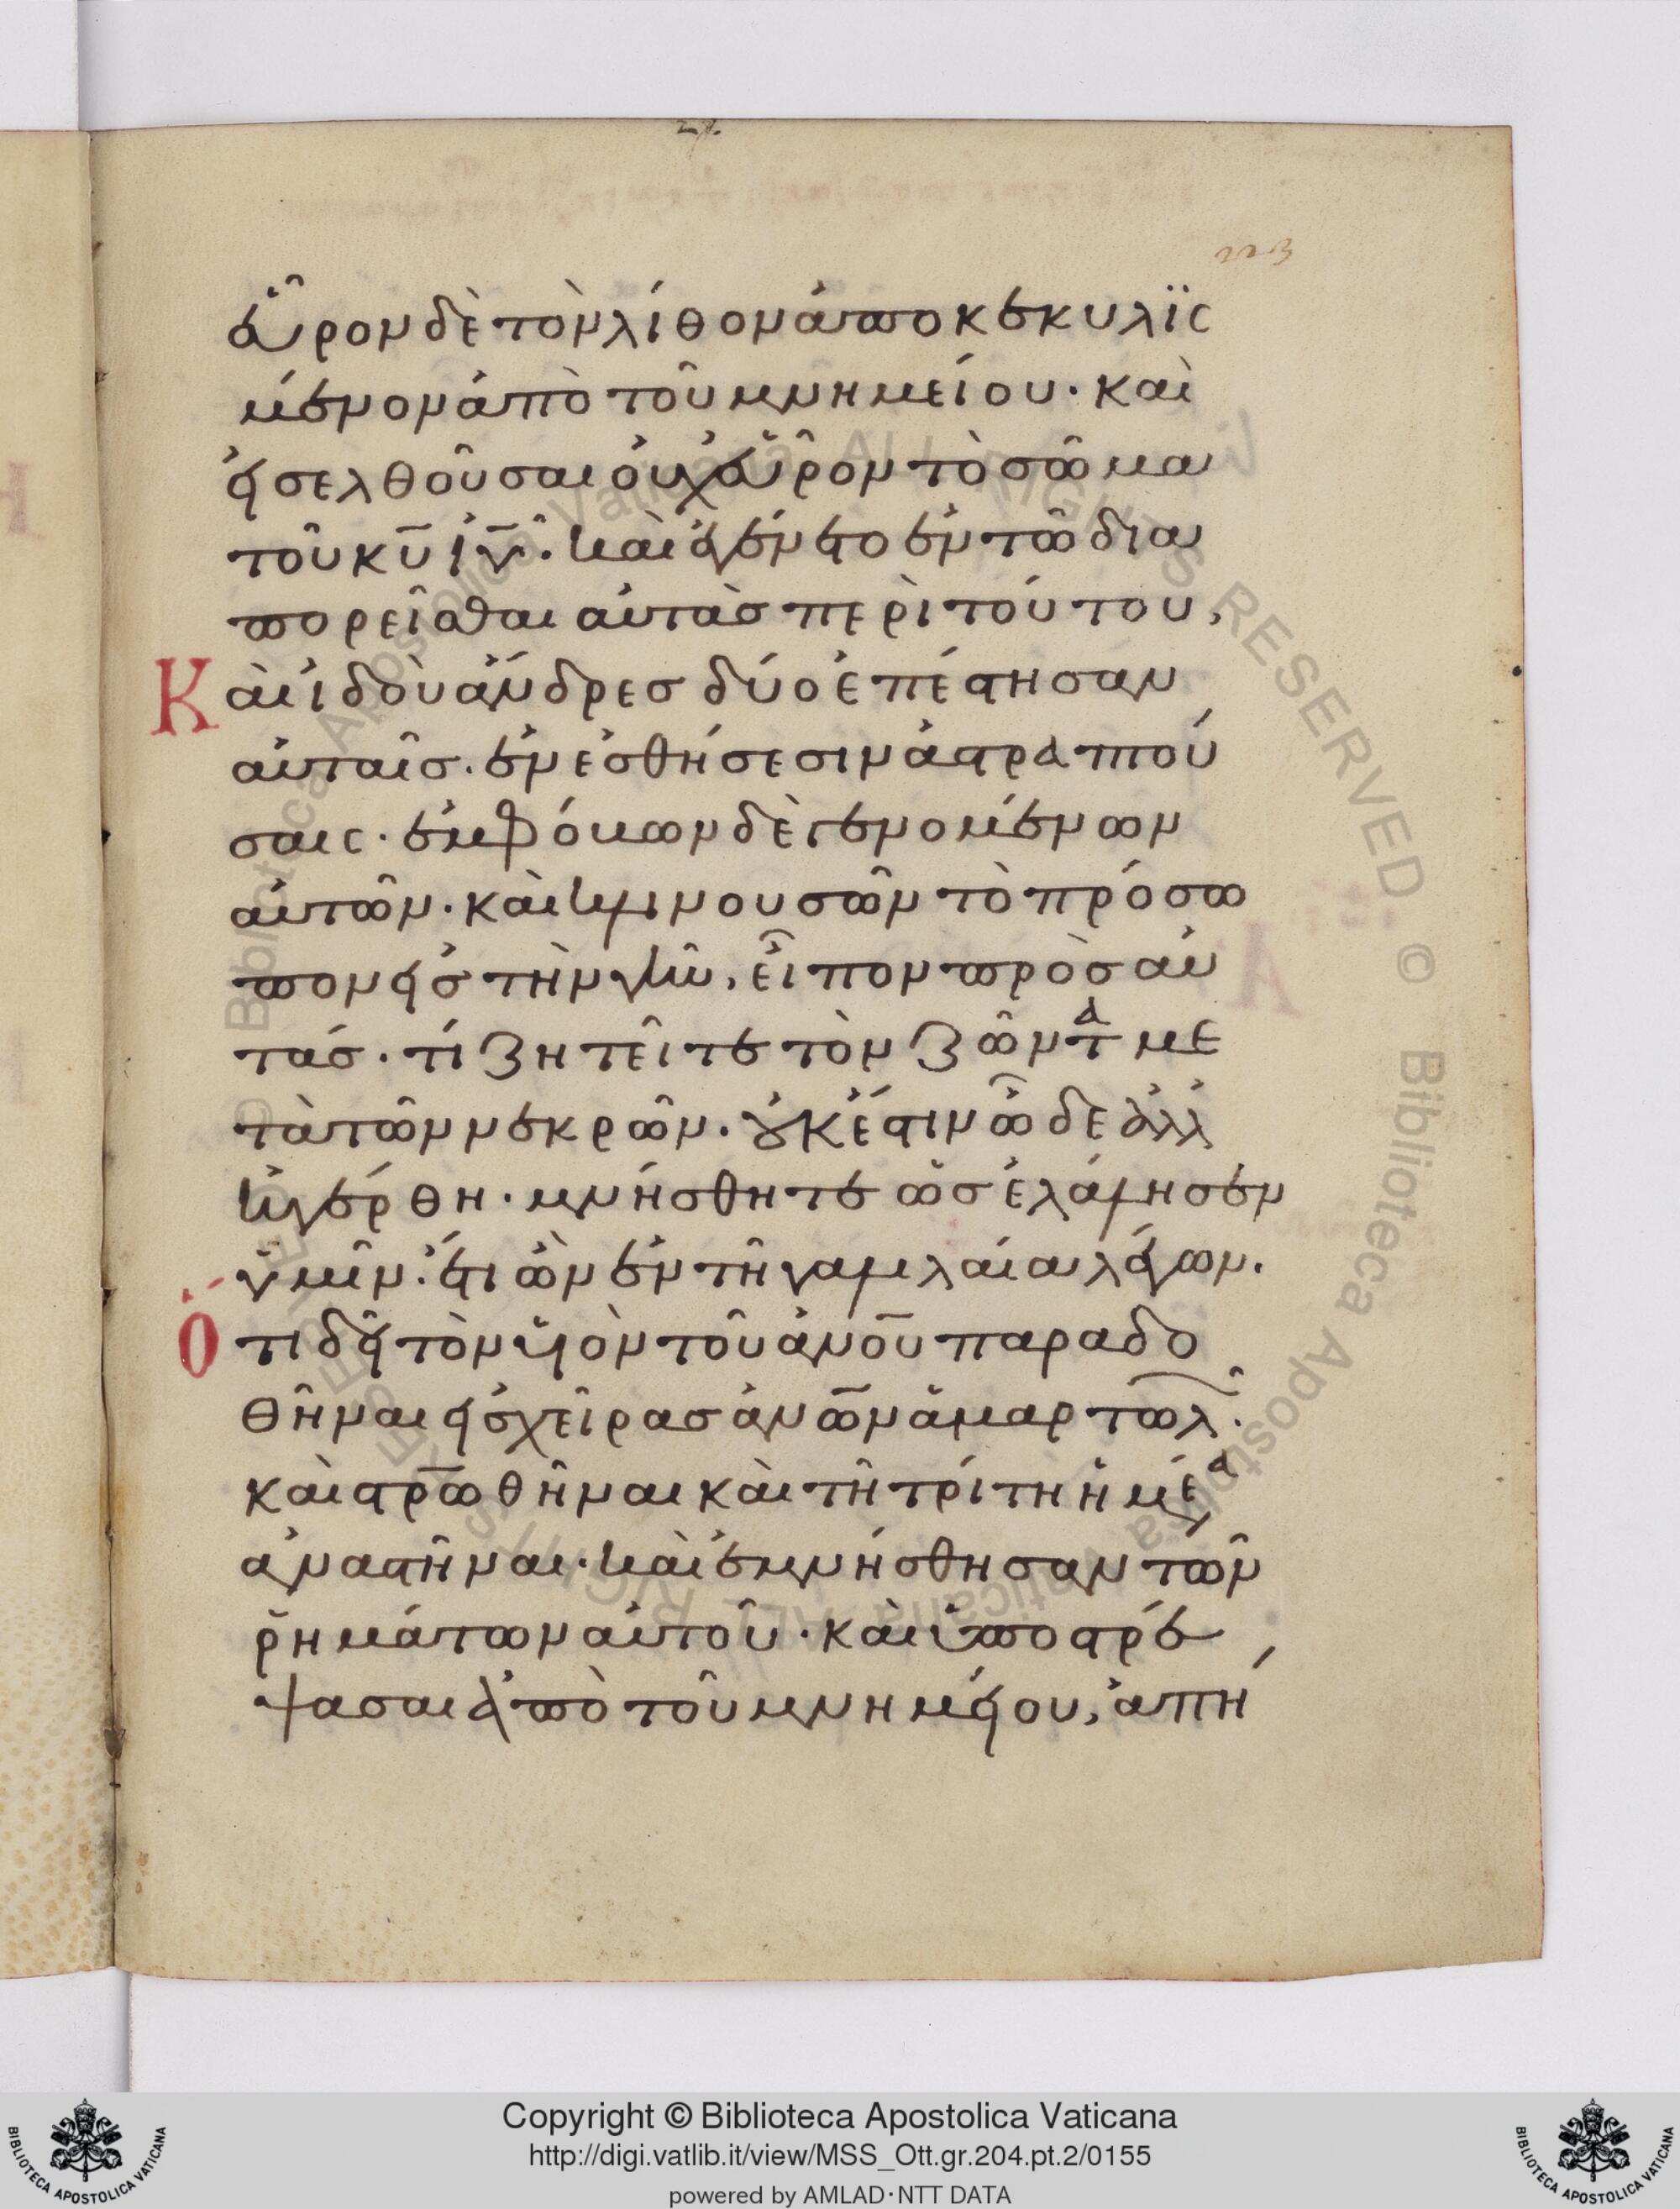 223
εὗρον δὲ τὸν λίθον ἀποκεκυλϊσ
μένον ἀπὸ τοῦ μνημείου· καὶ
εἰσελθοῦσαι οὐχ εὗρον τὸ σῶμα
τοῦ κ̅υ̅ ι̅υ̅· καὶ ἐγένετο ἐν τῶ δια
πορεῖσθαι αὐτὰσ περὶ τούτου,
Καὶ ἰδοὺ ἄνδρεσ δύο ἐπέστησαν
αὐταῖσ· ἐν ἐσθήσεσιν ἀστραπτού
σαις· ἐμφόβων δὲ γενομένων
αὐτῶν· καὶ κλινουσῶν τὸ πρόσω
πον εἰσ τὴν γῆν, εἶπον πρὸσ αὐ
τάσ· τί ζητεῖτε τὸν ζῶντα με
τὰ τῶν νεκρῶν· οὐκ ἔστιν ὧδε ἀλλ
ἠγέρθη· μνήσθητε ὡσ ἐλάλησεν
ὑμῖν· ἔτι ὢν ἐν τῆ γαλιλαία λέγων·
Ὅτι δεῖ τὸν υἱὸν τοῦ ἀ̅ν̅ο̅υ̅ παραδο
θῆναι εἰσ χεῖρασ ἀ̅ν̅ω̅ν̅ ἁμαρτωλ·
καὶ στ̅ρ̅ωθῆναι καὶ τῆ τρίτη ἡμέρα
ἀναστῆναι· καὶ ἐμνήσθησαν τῶν
ῥημάτων αὐτοῦ· καὶ ὑποστρέ
ψασαι ἀπὸ τοῦ μνημείου, ἀπή
© Biblioteca Apostolica Vaticana ALL RIGHTS RESERVED
Copyright © Biblioteca Apostolica Vaticana
http://digi.vatlib.it/view/MSS_Ott.gr.204.pt.2/0155
powered by AMLAD·NTT DATA
BIBLIOTECA APOSTOLICA VATICANA
BIBLIOTECA APOSTOLICA VATICANA